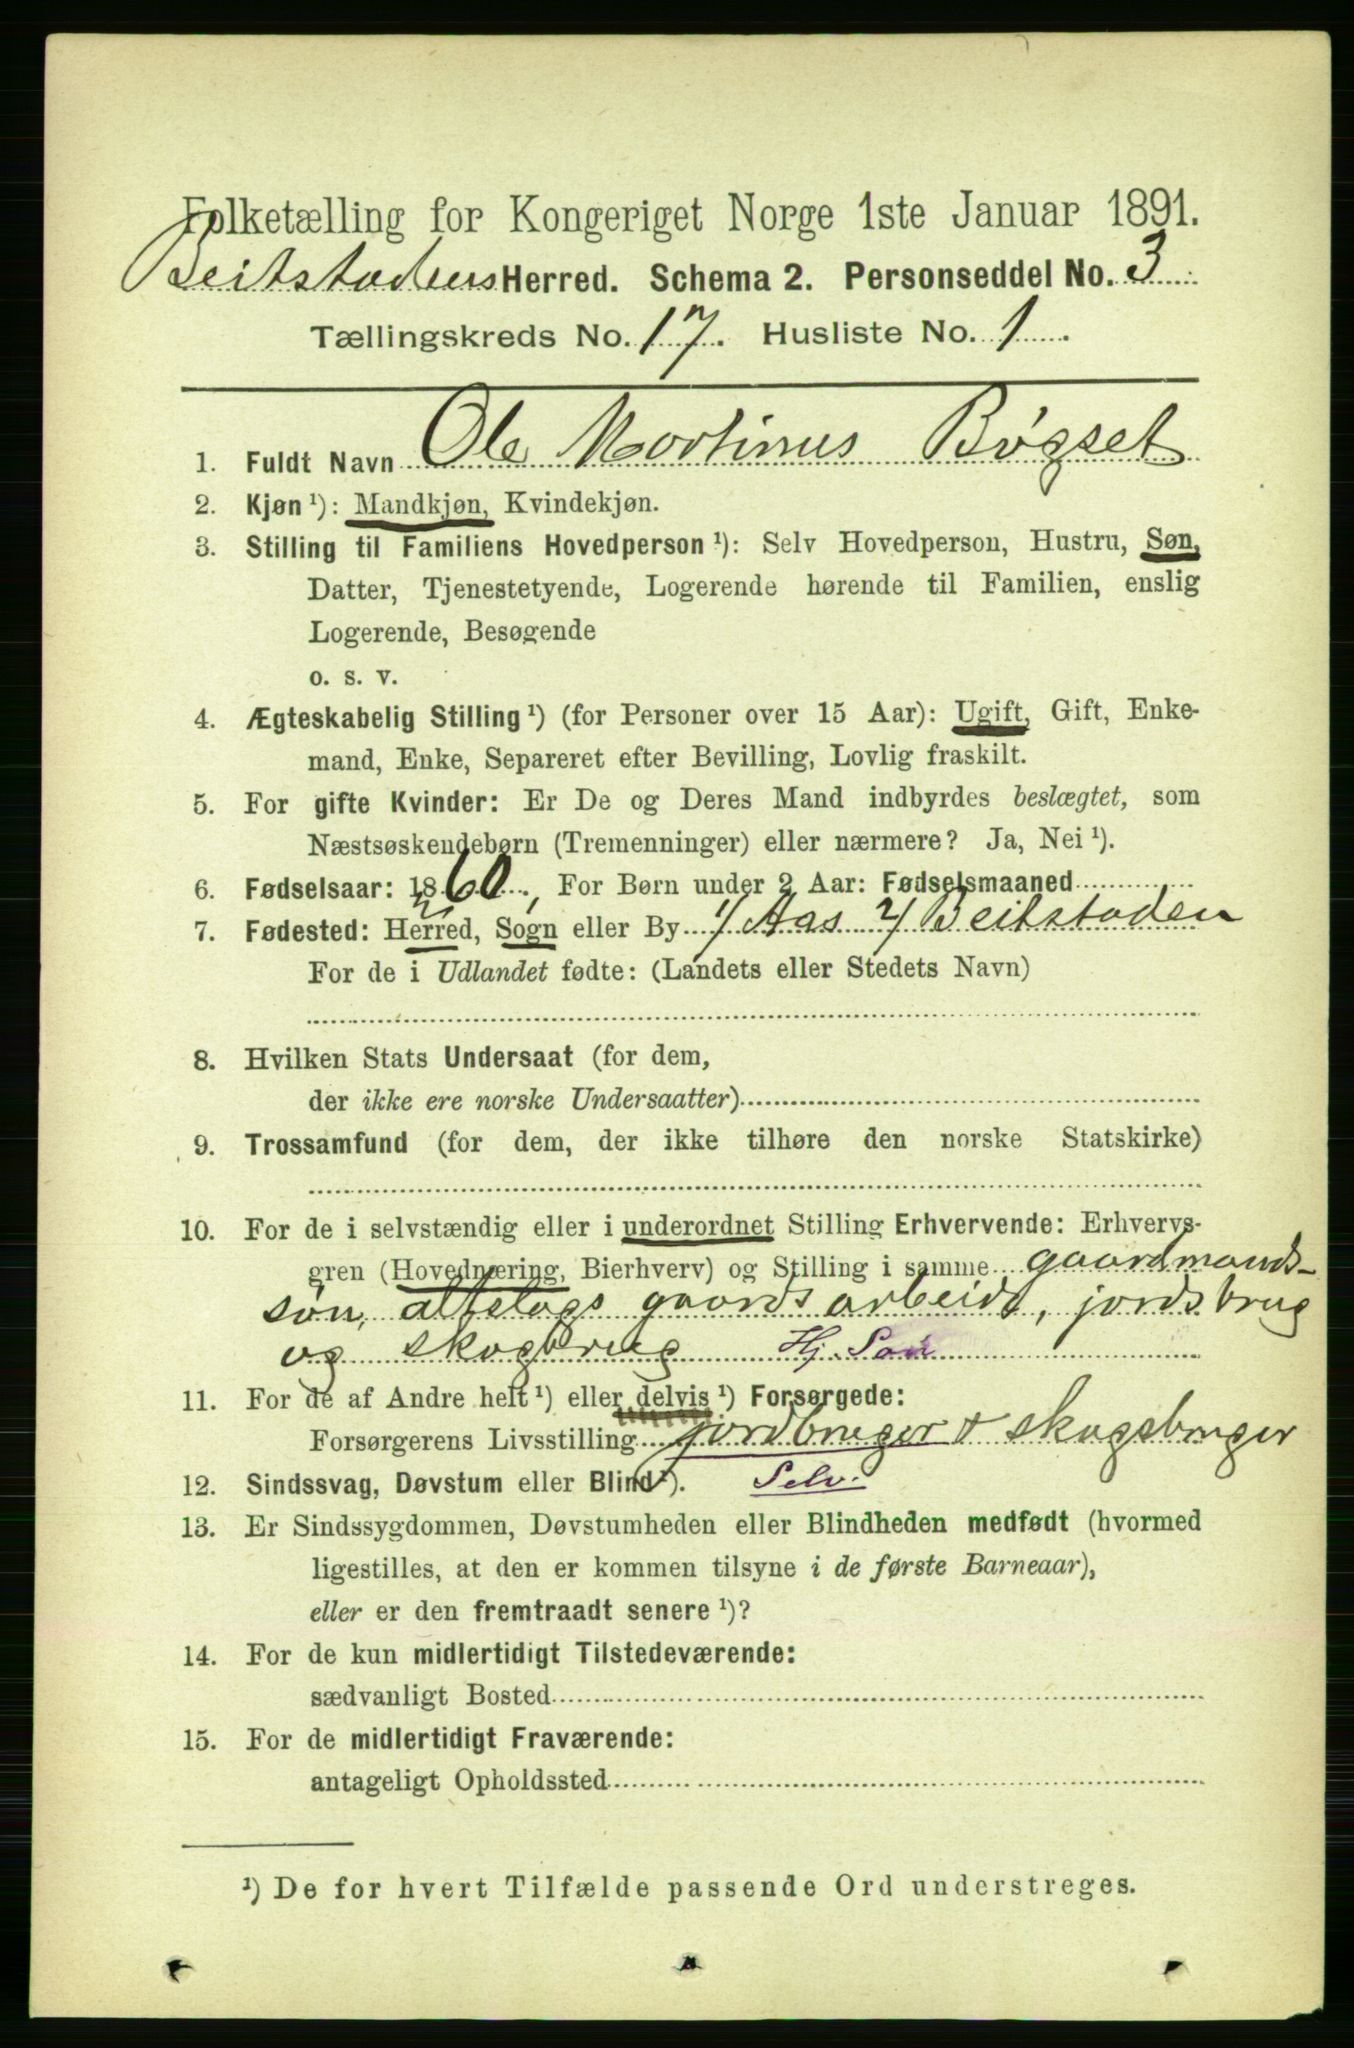 Folketælling for Kongeriget Norge 1ste Januar 1891.
Beitstadens Herred. Schema 2. Personseddel No. 3
Tællingskreds No. 17. Husliste No. 1.
1. Fuldt Navn Ole Martinus Bøgset
2. Kjøn ¹): Mandkjøn, Kvindekjøn.
3. Stilling til Familiens Hovedperson ¹): Selv Hovedperson, Hustru, Søn,
Datter, Tjenestetyende, Logerende hørende til Familien, enslig
Logerende, Besøgende
o. s. v.
4. Ægteskabelig Stilling ¹) (for Personer over 15 Aar): Ugift, Gift, Enke-
mand, Enke, Separeret efter Bevilling, Lovlig fraskilt.
5. For gifte Kvinder: Er De og Deres Mand indbyrdes beslægtet, som
Næstsøskendebørn (Tremenninger) eller nærmere? Ja, Nei ¹).
6. Fødselsaar: 1860., For Børn under 2 Aar: Fødselsmaaned
7. Fødested: Herred, Sogn eller By 1/ Aas 2/ Beitstaden
For de i Udlandet fødte: (Landets eller Stedets Navn)
8. Hvilken Stats Undersaat (for dem,
der ikke ere norske Undersaatter)
9. Trossamfund (for dem, der ikke tilhøre den norske Statskirke)
10. For de i selvstændig eller i underordnet Stilling Erhvervende: Erhvervs-
gren (Hovednæring, Bierhverv) og Stilling i samme gaardmands-
søn, altslags gaardsarbeide, jordsbrug
og skogbrug Hj. Søn
11. For de af Andre helt ¹) eller delvis ¹) Forsørgede:
Forsørgerens Livsstilling jordbruger & skogsbruger
12. Sindssvag, Døvstum eller Blind ¹). Selv.
13. Er Sindssygdommen, Døvstumheden eller Blindheden medfødt (hvormed
ligestilles, at den er kommen tilsyne i de første Barneaar),
eller er den fremtraadt senere ¹)?
14. For de kun midlertidigt Tilstedeværende:
sædvanligt Bosted
15. For de midlertidigt Fraværende:
antageligt Opholdssted
¹) De for hvert Tilfælde passende Ord understreges.